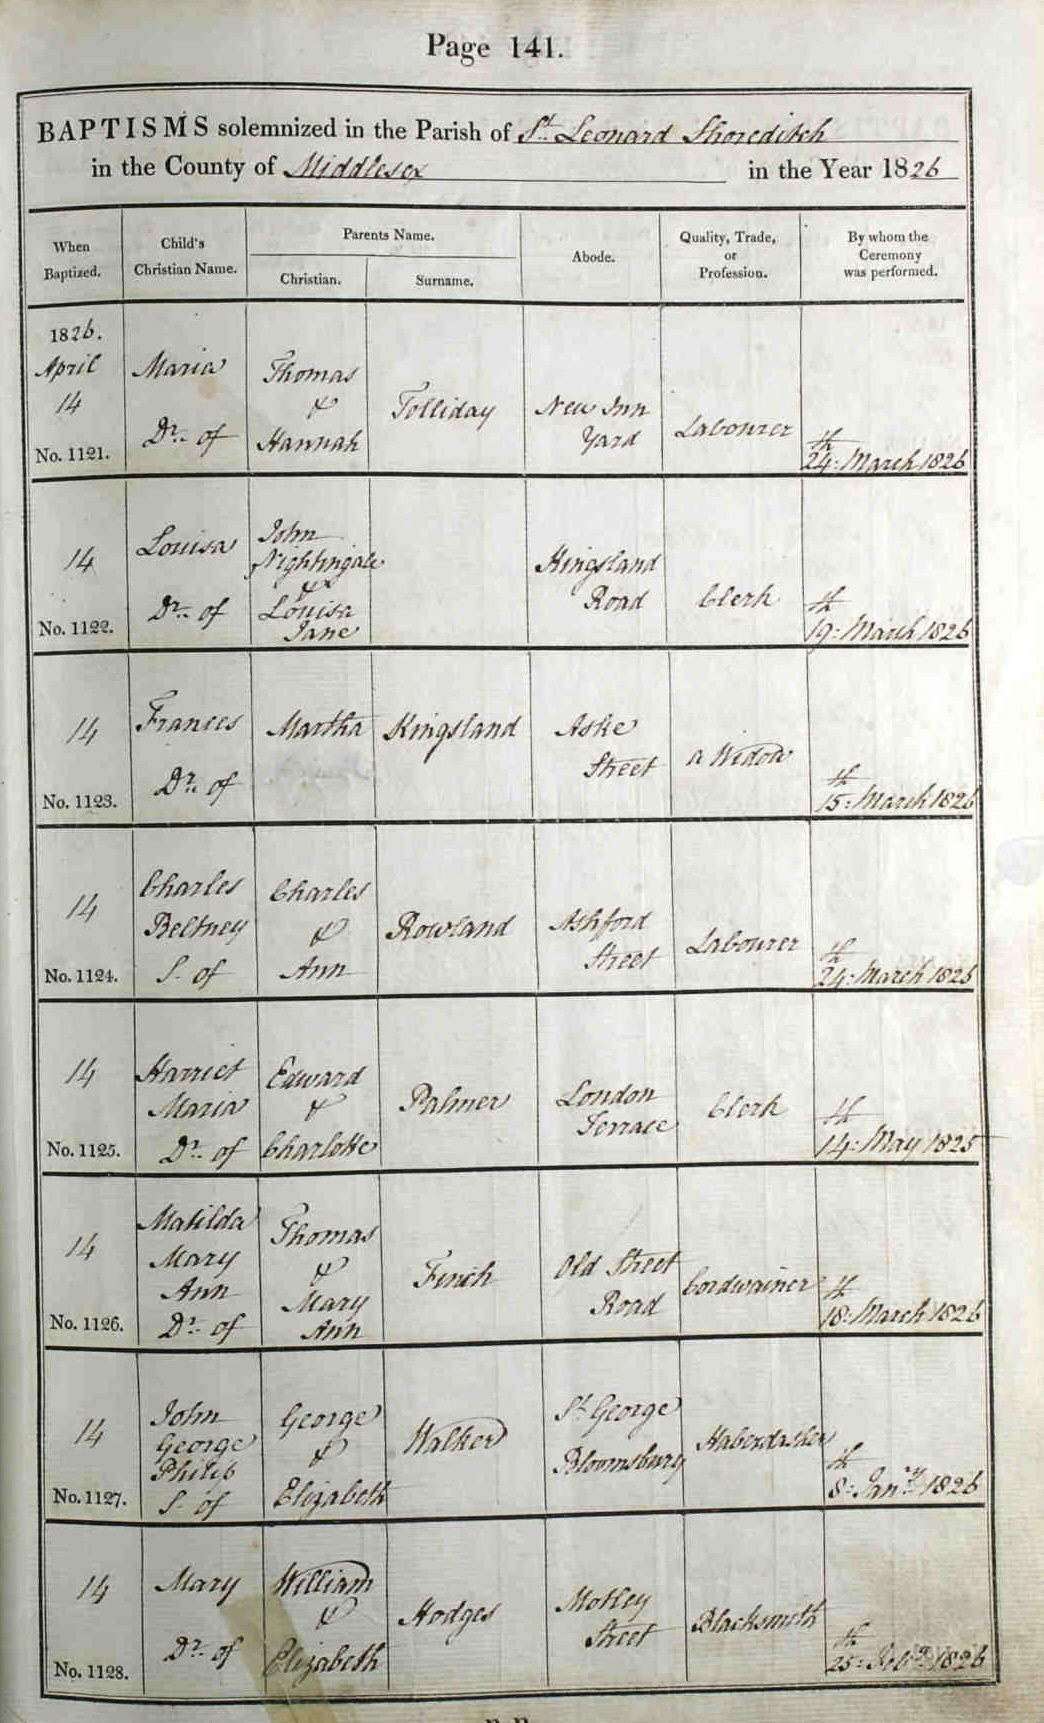 Page 141.
BAPTISMS solemnized in the Parish of St. Leonard Shoreditch
in the County of Middlesex in the Year 1826
When Baptized.
Child's Christian Name.
Parents Name.
Christian.
Surname.
Abode.
Quality, Trade, or Profession.
By whom the Ceremony was performed.
1826.
April
14
No. 1121.
Maria
Dr. of
Thomas
&
Hannah
Tolliday
New Inn
Yard
Labourer
24th: March 1826
14
No. 1122.
Louisa
Dr. of
John
Nightingale
&
Louisa
Jane
Kingsland
Road
Clerk
19th: March 1826
14
No. 1123.
Frances
Dr. of
Martha
Kingsland
Aske
Street
a Widow
15th: March 1826
14
No. 1124.
Charles
Beltney
S. of
Charles
&
Ann
Rowland
Ashford
Street
Labourer
24th: March 1826
14
No. 1125.
Harriet
Maria
Dr. of
Edward
&
Charlotte
Palmer
London
Terrace
Clerk
14th: May 1825
14
No. 1126.
Matilda
Mary
Ann
Dr. of
Thomas
&
Mary
Ann
Finch
Old Street
Road
Cordwainer
18th: March 1826
14
No. 1127.
John
George
Philip
S. of
George
&
Elizabeth
Walker
St. George
Bloomsbury
Haberdasher
8th: Jany. 1826
14
No. 1128.
Mary
Dr. of
William
&
Elizabeth
Hodges
Motley
Street
Blacksmith
25th: 1826